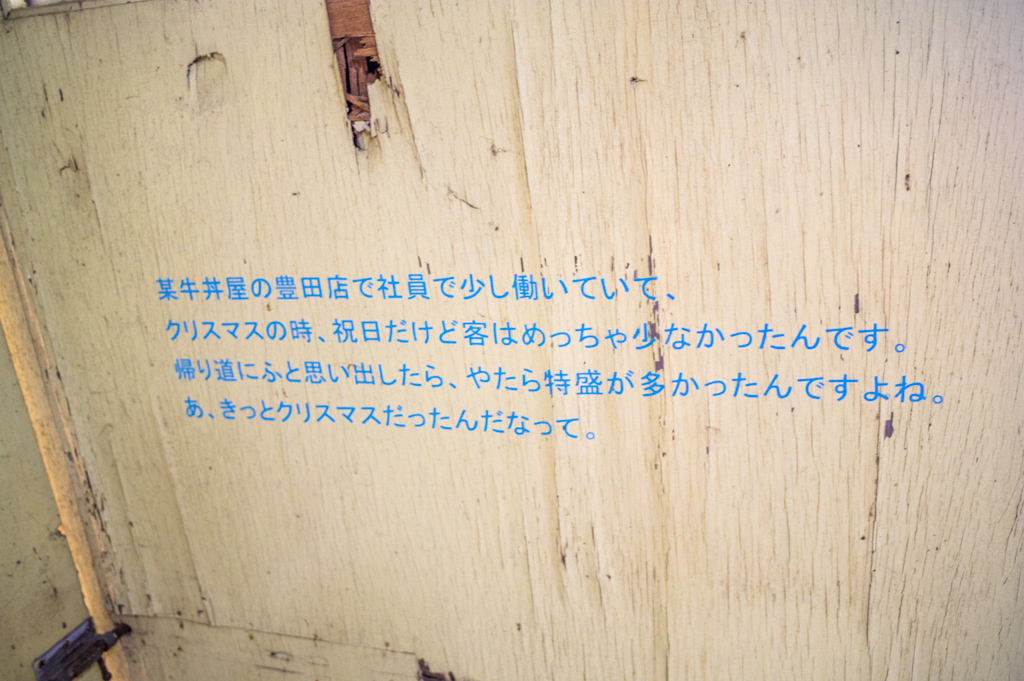 某牛丼屋の豊田店で社員で少し働いていて、
クリスマスの時、祝日だけど客はめっちゃ少なかったんです。
帰り道にふと思い出したら、やたら特盛が多かったんですよね。
あ、きっとクリスマスだったんだなって。